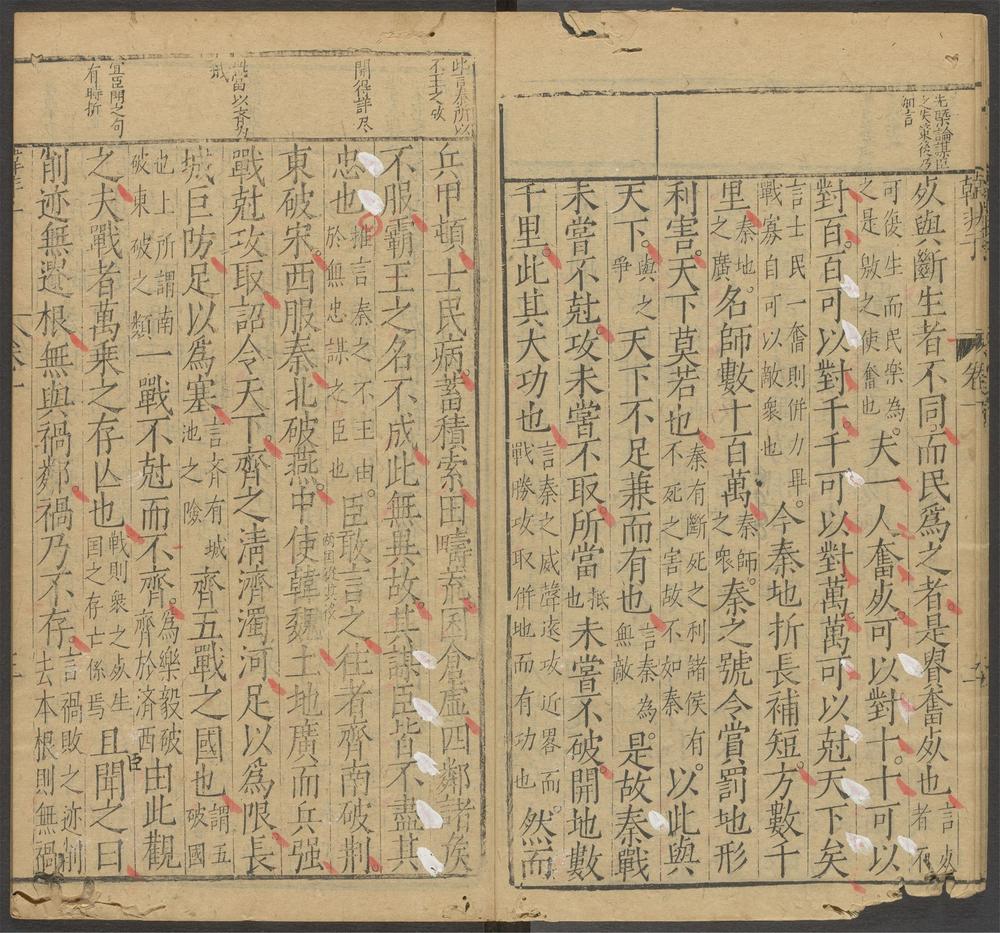 先槩論謀臣
之失策後乃
細言
韓非子 卷一
死與斷生者不同。而民爲之者是貴奮死也言死者不
可復生而民樂爲之是效之使奮也。夫一人奮死。可以對十。十可以
對百。百可以對千。千可以對萬。萬可以尅天下矣
言士民一奮則併力畢戰寡自可以敵衆也。今秦地折長補短。方數千
里。秦地之廣名師數十百萬秦師之衆。秦之號令賞罰地形
利害。天下莫若也秦有斷死之利諸侯有不死之害故不如秦。以此與
天下。與之爭天下不足兼而有也言秦爲無敵。是故秦戰
未嘗不尅。攻未嘗不取。所當抵也未嘗不破。開地數
千里。此其大功也言秦之威聲遠攻近畧而戰勝攻取併地而有功也。然而
此言秦所以
不王之故
開復詳尽
宜臣聞之句
有時折
兵甲頓。士民病。蓄積索。田疇荒。囷倉虛。四鄰諸侯
不服。霸王之名不成。此無異故。其謀臣皆不盡其
忠也推言秦之不王由於無忠謀之臣也。臣敢言之。往者齊南破荆。
東破宋。西服秦。北破燕。中使韓魏。兩国從其役土地廣而兵强。
戰尅攻取。詔令天下。齊之清濟濁河足以爲限。長
城巨防足以爲塞言齐有城池之險。齊五戰之國也謂五破國
也上所謂南破東破之類。一戰不尅而不齊。爲樂毅破齊於济西由此觀
之。夫戰者萬乘之存亾也戰則衆之死生国之存亡係焉。且臣聞之曰
削迹無遺根。無與禍鄰。禍乃不存。言禍敗之迹削去本根則無禍